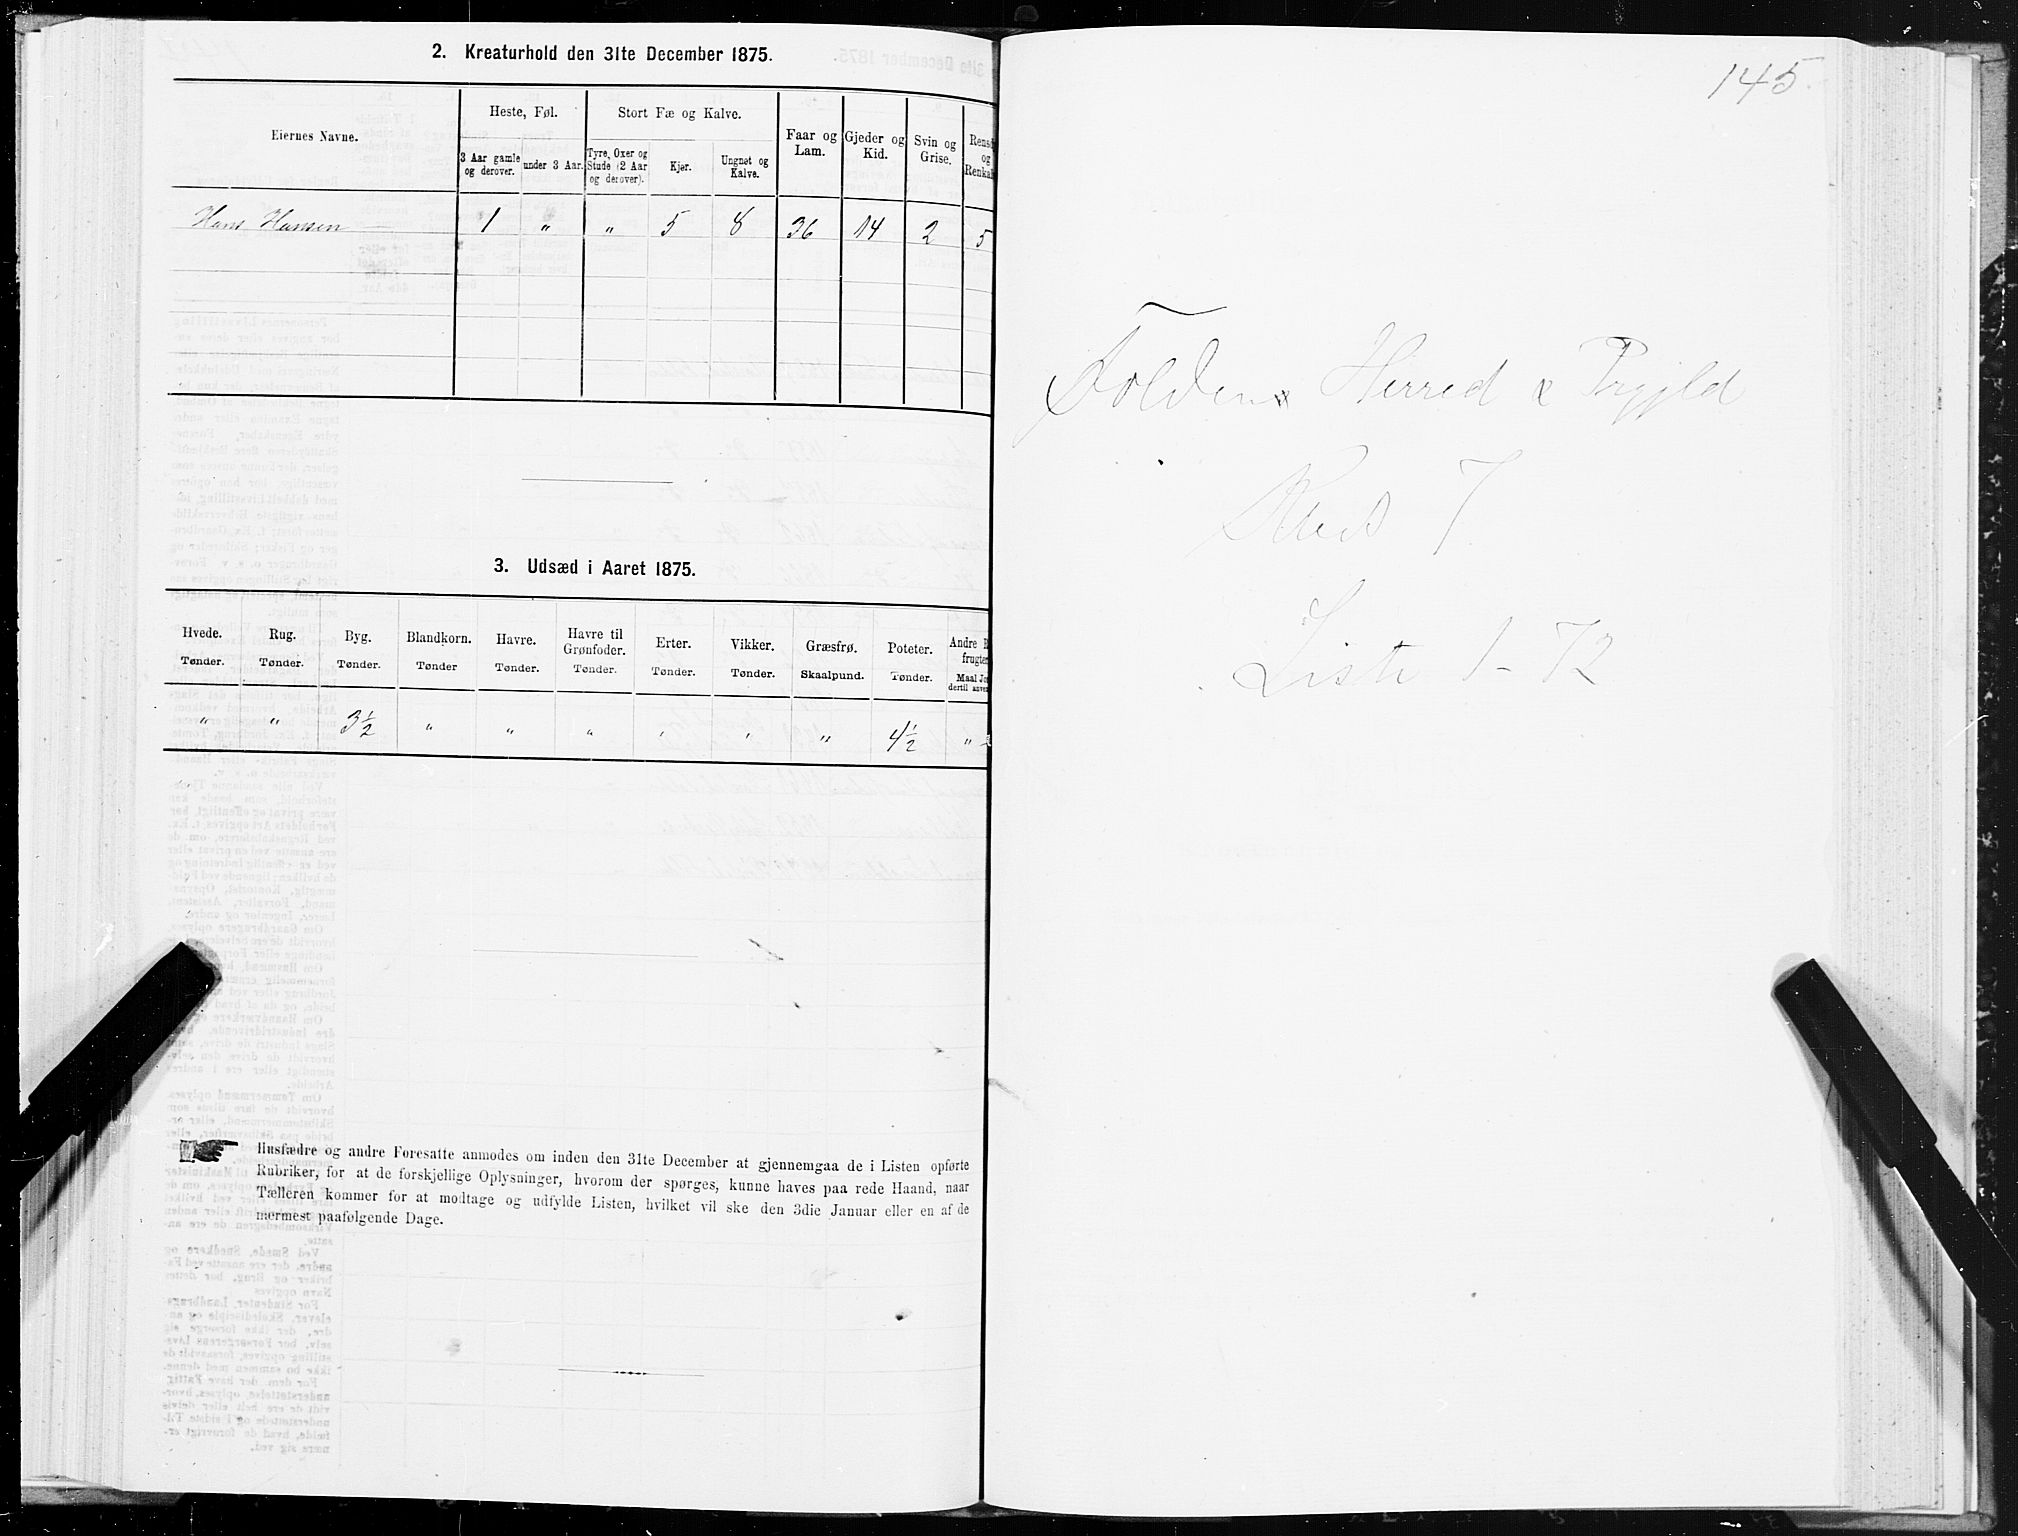 2. Kreaturhold den 31te December 1875.
Eiernes Navne.
Heste, Føl.
Stort Fæ og Kalve.
Faar og Lam.
Gjeder og Kid.
Svin og Grise.
Rensd
og
Renkal
3 Aar gamle og derover.
under 3 Aar.
Tyre, Oxer og Stude (2 Aar og derover).
Kjør.
Ungnøt og Kalve.
Hans Hansen 1 " " 5 8 36 14 2 5
3. Udsæd i Aaret 1875.
Hvede. Rug. Byg. Blandkorn. Havre. Havre til Grønfoder. Erter. Vikker. Græsfrø. Poteter. Andre R
frugter
Tønder. Tønder. Tønder. Tønder Tønder. Tønder. Tønder. Tønder. Skaalpund. Tønder. Maal Jor
dertil anven
" " 3½ " " " " " " 4½ "
Husfædre og andre Foresatte anmodes om inden den 31te December at gjennemgaa de i Listen opførte
Rubriker, for at de forskjellige Oplysninger, hvorom der spørges, kunne haves paa rede Haand, naar
Tælleren kommer for at modtage og udfylde Listen, hvilket vil ske den 3die Januar eller en af de
nærmest paafølgende Dage.
145.
Folden Herred & Prgjld
7
Liste 1-72